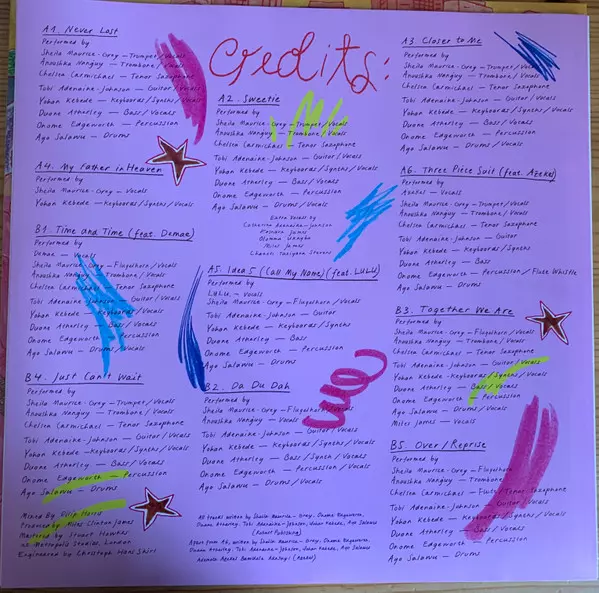 Credits:
A1. Never Lost
Performed by
Sheila Maurice-Grey — Trumpet/Vocals
Anoushka Nanguy — Trombone/Vocals
Chelsea Carmichael — Tenor Saxophone
Tobi Adenaine-Johnson — Guitar/Vocals
Yohan Kebede — Keyboards/Synths/Vocals
Duane Atherley — Bass/Vocals
Onome Edgeworth — Percussion
Ayo Salawu — Drums
A4. My Father in Heaven
Performed by
Sheila Maurice-Grey — Vocals
Yohan Kebede — Keyboards/Synths/Vocals
B1. Time and Time (feat. Demae)
Performed by
Demae — Vocals
Sheila Maurice-Grey — Flugelhorn/Vocals
Anoushka Nanguy — Trombone/Vocals
Chelsea Carmichael — Tenor Saxophone
Tobi Adenaine-Johnson — Guitar/Vocals
Yohan Kebede — Keyboards/Vocals
Duane Atherley — Bass/Vocals
Onome Edgeworth — Percussion
Ayo Salawu — Drums/Vocals
B4. Just Can't Wait
Performed by
Sheila Maurice-Grey — Flugelhorn/Vocals
Anoushka Nanguy — Trombone/Vocals
Chelsea Carmichael — Tenor Saxophone
Tobi Adenaine-Johnson — Guitar/Vocals
Yohan Kebede — Keyboards/Synths/Vocals
Duane Atherley — Bass/Vocals
Onome Edgeworth — Percussion
Ayo Salawu — Drums
Mixed By
Produced by Miles Clinton James
Mastered by Stuart Hawkes
at Metropolis Studios, London
Engineered by Christoph Hans Skirl
A2. Sweetie
Performed by
Sheila Maurice-Grey — Trumpet/Vocals
Anoushka Nanguy — Trombone/Vocals
Chelsea Carmichael — Tenor Saxophone
Tobi Adenaine-Johnson — Guitar/Vocals
Yohan Kebede — Keyboards/Synths/Vocals
Duane Atherley — Bass/Vocals
Onome Edgeworth — Percussion
Ayo Salawu — Drums/Vocals
Extra Vocals by
Catherine Adenaine-Johnson
James
Miles James
A5. Idea 5 (Call My Name) (feat. LULU.)
Performed by
LULU. — Vocals
Sheila Maurice-Grey — Flugelhorn/Vocals
Tobi Adenaine-Johnson — Guitar/Vocals
Yohan Kebede — Keyboards/Synths
Duane Atherley — Bass/Vocals
Onome Edgeworth — Percussion
Ayo Salawu — Drums
B2. Da Du Dah
Performed by
Sheila Maurice-Grey — Flugelhorn/Vocals
Anoushka Nanguy — Vocals
Tobi Adenaine-Johnson — Guitar/Vocals
Yohan Kebede — Keyboards/Synths/Vocals
Duane Atherley — Bass/Vocals
Onome Edgeworth — Percussion/Vocals
Ayo Salawu — Drums/Vocals
All tracks written by Sheila Maurice-Grey, Onome Edgeworth,
Duane Atherley, Tobi Adenaine-Johnson, Yohan Kebede, Ayo Salawu
Apart from A6, written by Sheila Maurice-Grey, Onome Edgeworth,
Duane Atherley, Tobi Adenaine-Johnson, Yohan Kebede, Ayo Salawu
A3. Closer to Me
Performed by
Sheila Maurice-Grey — Trumpet/Vocals
Anoushka Nanguy — Trombone/Vocals
Chelsea Carmichael — Tenor Saxophone
Tobi Adenaine-Johnson — Guitar/Vocals
Yohan Kebede — Keyboards/Synths/Vocals
Duane Atherley — Bass/Vocals
Onome Edgeworth — Percussion
Ayo Salawu — Drums/Vocals
A6. Three Piece Suit (feat. Azekel)
Performed by
Azekel — Vocals
Sheila Maurice-Grey — Vocals
Chelsea Carmichael — Tenor Saxophone
Tobi Adenaine-Johnson — Guitar/Vocals
Yohan Kebede — Keyboards/Synths
Duane Atherley — Bass
Onome Edgeworth — Percussion/Flute Whistle
Ayo Salawu — Drums
B3. Together We Are
Performed by
Sheila Maurice-Grey — Flugelhorn/Vocals
Anoushka Nanguy — Trombone/Vocals
Chelsea Carmichael — Tenor Saxophone
Tobi Adenaine-Johnson — Guitar/Vocals
Yohan Kebede — Keyboards/Synths/Vocals
Duane Atherley — Bass/Vocals
Onome Edgeworth — Percussion
Ayo Salawu — Drums/Vocals
Miles James — Vocals
B5. Over/Reprise
Performed by
Sheila Maurice-Grey — Flugelhorn
Anoushka Nanguy — Trombone
Chelsea Carmichael — Flute/Tenor Saxophone
Tobi Adenaine-Johnson — Guitar/Vocals
Yohan Kebede — Keyboards/Synths/Vocals
Duane Atherley — Bass/Vocals
Onome Edgeworth — Percussion
Ayo Salawu — Drums